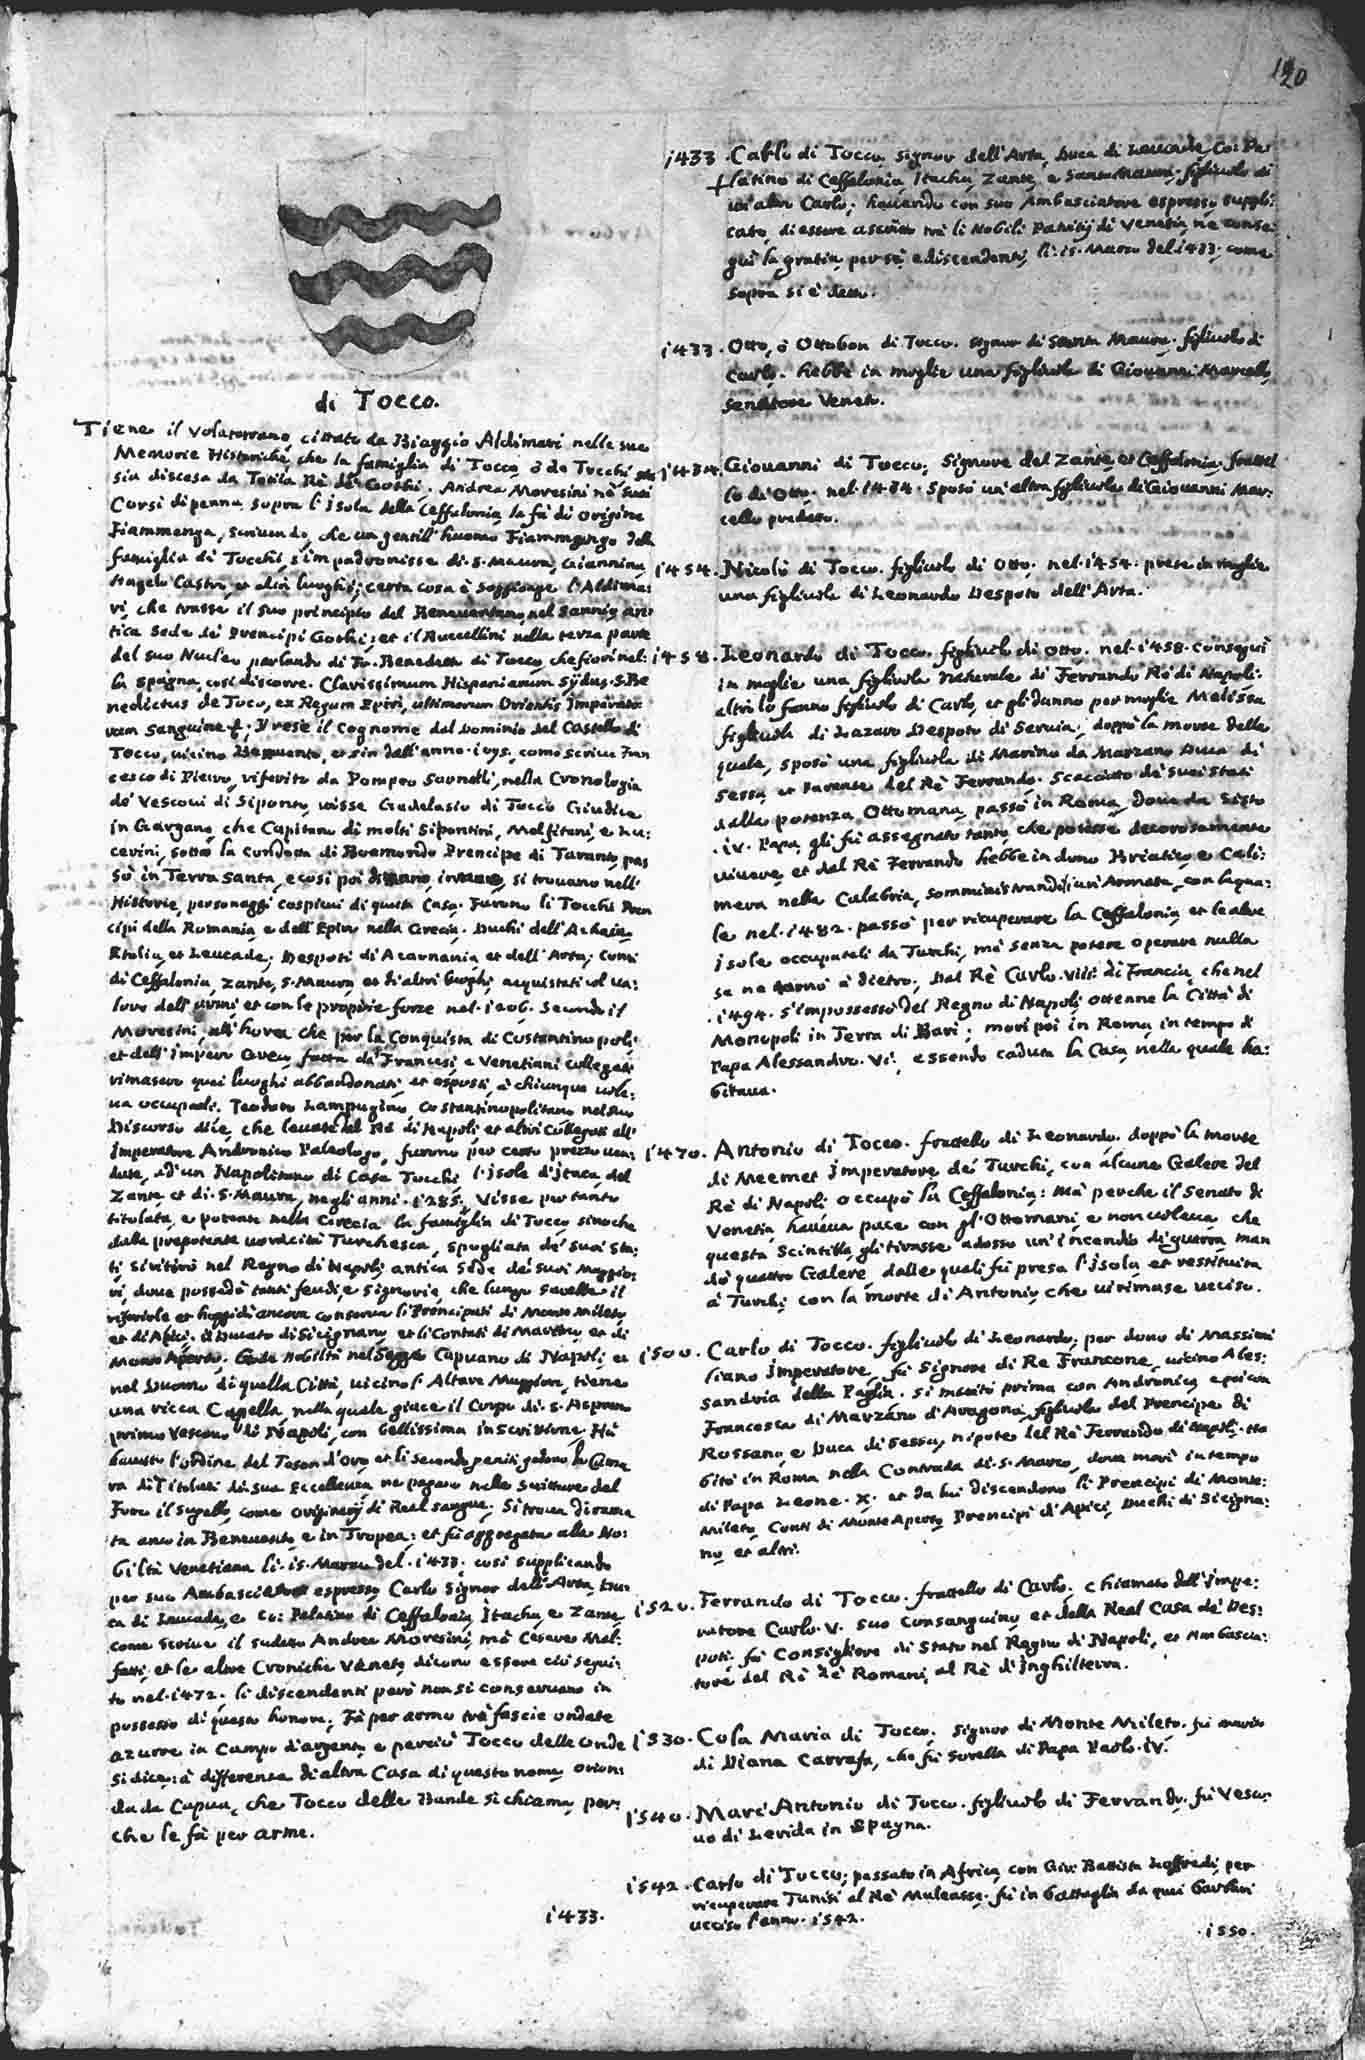 120
di Tocco.
Tiene il Volaterrano cittato da Biaggio Aldimari nelle sue
Memorie Historiche, che la famiglia di Tocco, ò de Tocchi
sia discesa da Totila Rè de' Gothi. Andrea Moresini nè suoi
Corsi di penna sopra l'isola della Ceffalonia la fà di origine
Fiammenga, scrivendo, che un gentill'huomo Fiammengo della
famiglia di Tocchi, s'impadronisse di S. Maura, Giannina,
Angelo Castro, et altri luoghi; certa cosa è soggionge l'Aldima:
ri, che trasse il suo principio del Beneventano, nel Sannio, an:
tica sede de' Prencipi Gothi; et il Buccellini nella terza parte
del suo Nucleo parlando di Fr. Benedetto di Tocco, che fiorì nel:
la Spagna, così discorre. Clarissimum Hispaniarum sydus. S. Be
nedictus de Toco, ex Regum Epiri, ultimorum Orientis Imperato
rum sanguine &; Prese il Cognome dal Dominio del Castello di
Tocco, vicino Benevento, et sin dall'anno 1095, come scrive Fran
cesco di Pietro, riferito da Pompeo Sarnelli, nella Cronologia
de' Vescovi di Siponto, visse Gadelasio di Tocco Giudice
in Gargano, che Capitano di molti Sipontini, Molfitani, e Nu:
cerini, sotto la condotta di Boemondo Prencipe di Taranto, pas
sò in Terra Santa, e così poi di mano, in mano, si trovano nell'
Historie, personaggi cospicui di questa Casa. Furono li Tocchi Pren
cipi della Romania, e dell'Epiro nella Grecia. Duchi dell'Achaia,
Etolia, et Leucade; Despoti di Acarnania et dell'Arta; Conti
di Ceffalonia, Zante, S. Maura, et di altri luoghi acquistati col va:
lore dell'armi, et con le proprie forze nel 1206. secondo il
Moresini, all'hora che per la Conquista di Costantinopoli,
et dell'impero Greco, fatta dà Francesi, e Venetiani collegati
rimasero quei luoghi abbandonati, et esposti, à chiunque vole:
va occuparli. Teodoro Lampugino, Costantinopolitano nel suo
Discorso dice, che levate dal Rè di Napoli, et altri Collegati all'
imperatore Andronico Paleologo, furono per certo prezzo ven:
dute, ad'un Napolitano di Casa Tocchi, l'isole d'Itaca, del
Zante, et di S. Maura, negli anni 1285. Visse per tanto
titolata, e potente nella Grecia la famiglia di Tocco, sinoche
dalla prepotente voracità Turchesca, spogliata de' suoi sta:
ti, si ritirò nel Regno di Napoli, antica sede de' suoi maggio:
ri, dove possedè tanti feudi, e signorie, che lungo sarebbe il
riferirle et hoggidì ancora conserva li Principati di Monte Mileto,
et di Apici, il Ducato di Sicignano, et li Contati di Martino, et di
Monte Aperto. Gode nobiltà nel Seggio Capuano di Napoli, et
nel Duomo di quella Città, vicino l'Altare Maggiore, tiene
una ricca Capella, nella quale giace il Corpo di S. Aspreno
primo Vescovo di Napoli, con bellissima inscrittione. Hà
havuto l'ordine del Toson d'Oro, et li secondo geniti godono la Came
ra di Titolati di sua Eccellenza, ne pagano nelle scritture del
Foro il sugello, come originarij di Real sangue. Si trova dirama
ta anco in Benevento, e in Tropea; et fù aggregata alla No:
biltà Venetiana li 15 Marzo del 1433. così supplicando
per suo Ambasciatore espresso, Carlo Signor dell'Arta, Du:
ca di Leucade, e Co: Palatino di Ceffalonia, Itacha, e Zante,
come scrive il sudetto Andrea Moresini, mà Cesare Mal:
fatti, et le altre Croniche Venete dicono essere ciò segui:
to nel 1472. li discendenti però non si conservano in
possesso di questo honore. Fà per arme trè fascie ondate
azurre in Campo d'argento, e perciò Tocco delle onde
si dice; à differenza di altra Casa di questo nome, orion:
da da Capua, che Tocco delle Bande si chiama, per:
che le fà per arme.
1433.
1433. Carlo di Tocco, signor dell'Arta, Duca di Leucade, Co: Pa:
latino di Ceffalonia, Itacha, Zante, e Santa Maura, figliuolo di
un'altro Carlo; havendo con suo Ambasciatore espresso suppli:
cato, di essere ascritto trà li Nobili Patritij di Venetia, ne conse:
guì la gratia, per sè, e discendenti, li 15 Marzo del 1433, come
sopra si è detto.
1433. Otto, ò Ottobon di Tocco. signor di Santa Maura. figliuolo di
Carlo. hebbe in moglie una figliuola di Giovanni Marcello,
senatore Veneto.
1434. Giovanni di Tocco; Signore del Zante, et Ceffalonia, fratel
lo di Otto. nel 1434. Sposò un'altra figliuola di Giovanni Mar:
cello predetto.
1454. Nicolò di Tocco. figliuolo di Otto. nel 1454. prese in moglie
una figliuola di Leonardo Despota dell'Arta.
1458. Leonardo di Tocco. figliuolo di Otto. nel 1458. conseguì
in moglie una figliuola naturale di Ferrando Rè di Napoli.
altri lo fanno figliuolo di Carlo, et gli danno per moglie Melissa
figliuola di Lazaro Despota di Servia; doppò la morte della
quale, sposò una figliuola di Marino da Marzano Duca di
Sessa, et parente del Rè Ferrando. Scacciato de' suoi stati
dalla potenza Ottomana, passò in Roma, dove da Sisto
.IV. Papa, gli fù assegnato tanto, che potesse decorosamente
vivere, et dal Rè Ferrando hebbe in dono Briatico, e Cali:
mera nella Calabria, somministrandoli un'Armata, con la qua:
le nel 1482. passò per ricuperare la Ceffalonia, et le altre
isole occupateli da Turchi, mà senza potere operare nulla
se ne tornò à dietro, Dal Rè Carlo VIII. di Francia, che nel
.1494. s'impossessò del Regno di Napoli, ottenne la Città di
Monopoli in Terra di Bari; morì poi in Roma, in tempo di
Papa Alessandro .VI., essendo caduta la Casa, nella quale ha:
bitava.
1470. Antonio di Tocco. fratello di Leonardo. doppò la morte
di Meemet Imperatore dei Turchi, con alcune Galere del
Rè di Napoli, occupò la Ceffalonia; mà perche il Senato di
Venetia, haveva pace con gl'Ottomani, e non voleva, che
questa scintilla gli tirasse adosso un'incendio di guerra, man
dò quattro Galere, dalle quali fù presa l'isola et restituita
à Turchi, con la morte di Antonio, che vi rimase ucciso.
1500. Carlo di Tocco. figliuolo di Leonardo, per dono di Massimi
liano Imperatore, fù Signore di Re Francone, vicino Ales:
sandria della Paglia. si maritò prima con Andronica, e poi con
Francesca di Marzano d'Aragona, figliuola del Prencipe di
Rossano, e Duca di Sessa, nipote del Rè Ferrando di Napoli. Ha
bitò in Roma nella Contrada di S. Marco, dove morì in tempo
di Papa Leone .X. et da lui discendono li Prencipi di Monte:
Mileto, Conti di Monte Aperto, Prencipi d'Apici, Duchi di Sicigna:
no, et altri.
1520. Ferrando di Tocco. fratello di Carlo. chiamato dall'impe:
ratore Carlo .V. suo consanguineo, et della Real Casa de' Des:
poti. fù Consigliere di Stato nel Regno di Napoli, et Ambascia:
tore del Rè de' Romani, al Rè d'Inghilterra.
1530. Cola Maria di Tocco. signor di Monte Mileto. fù marito
di Diana Carrafa, che fù sorella di Papa Paolo .IV.
1540. Marc'Antonio di Tocco. figliuolo di Ferrando. fù Vesco:
vo di Lerida in Spagna.
1542. Carlo di Tocco; passato in Africa, con Gio: Battista Loffredi, per
ricuperare Tunisi al Rè Muleasse. fù in battaglia da quei barbari
ucciso l'anno 1542.
.1550.